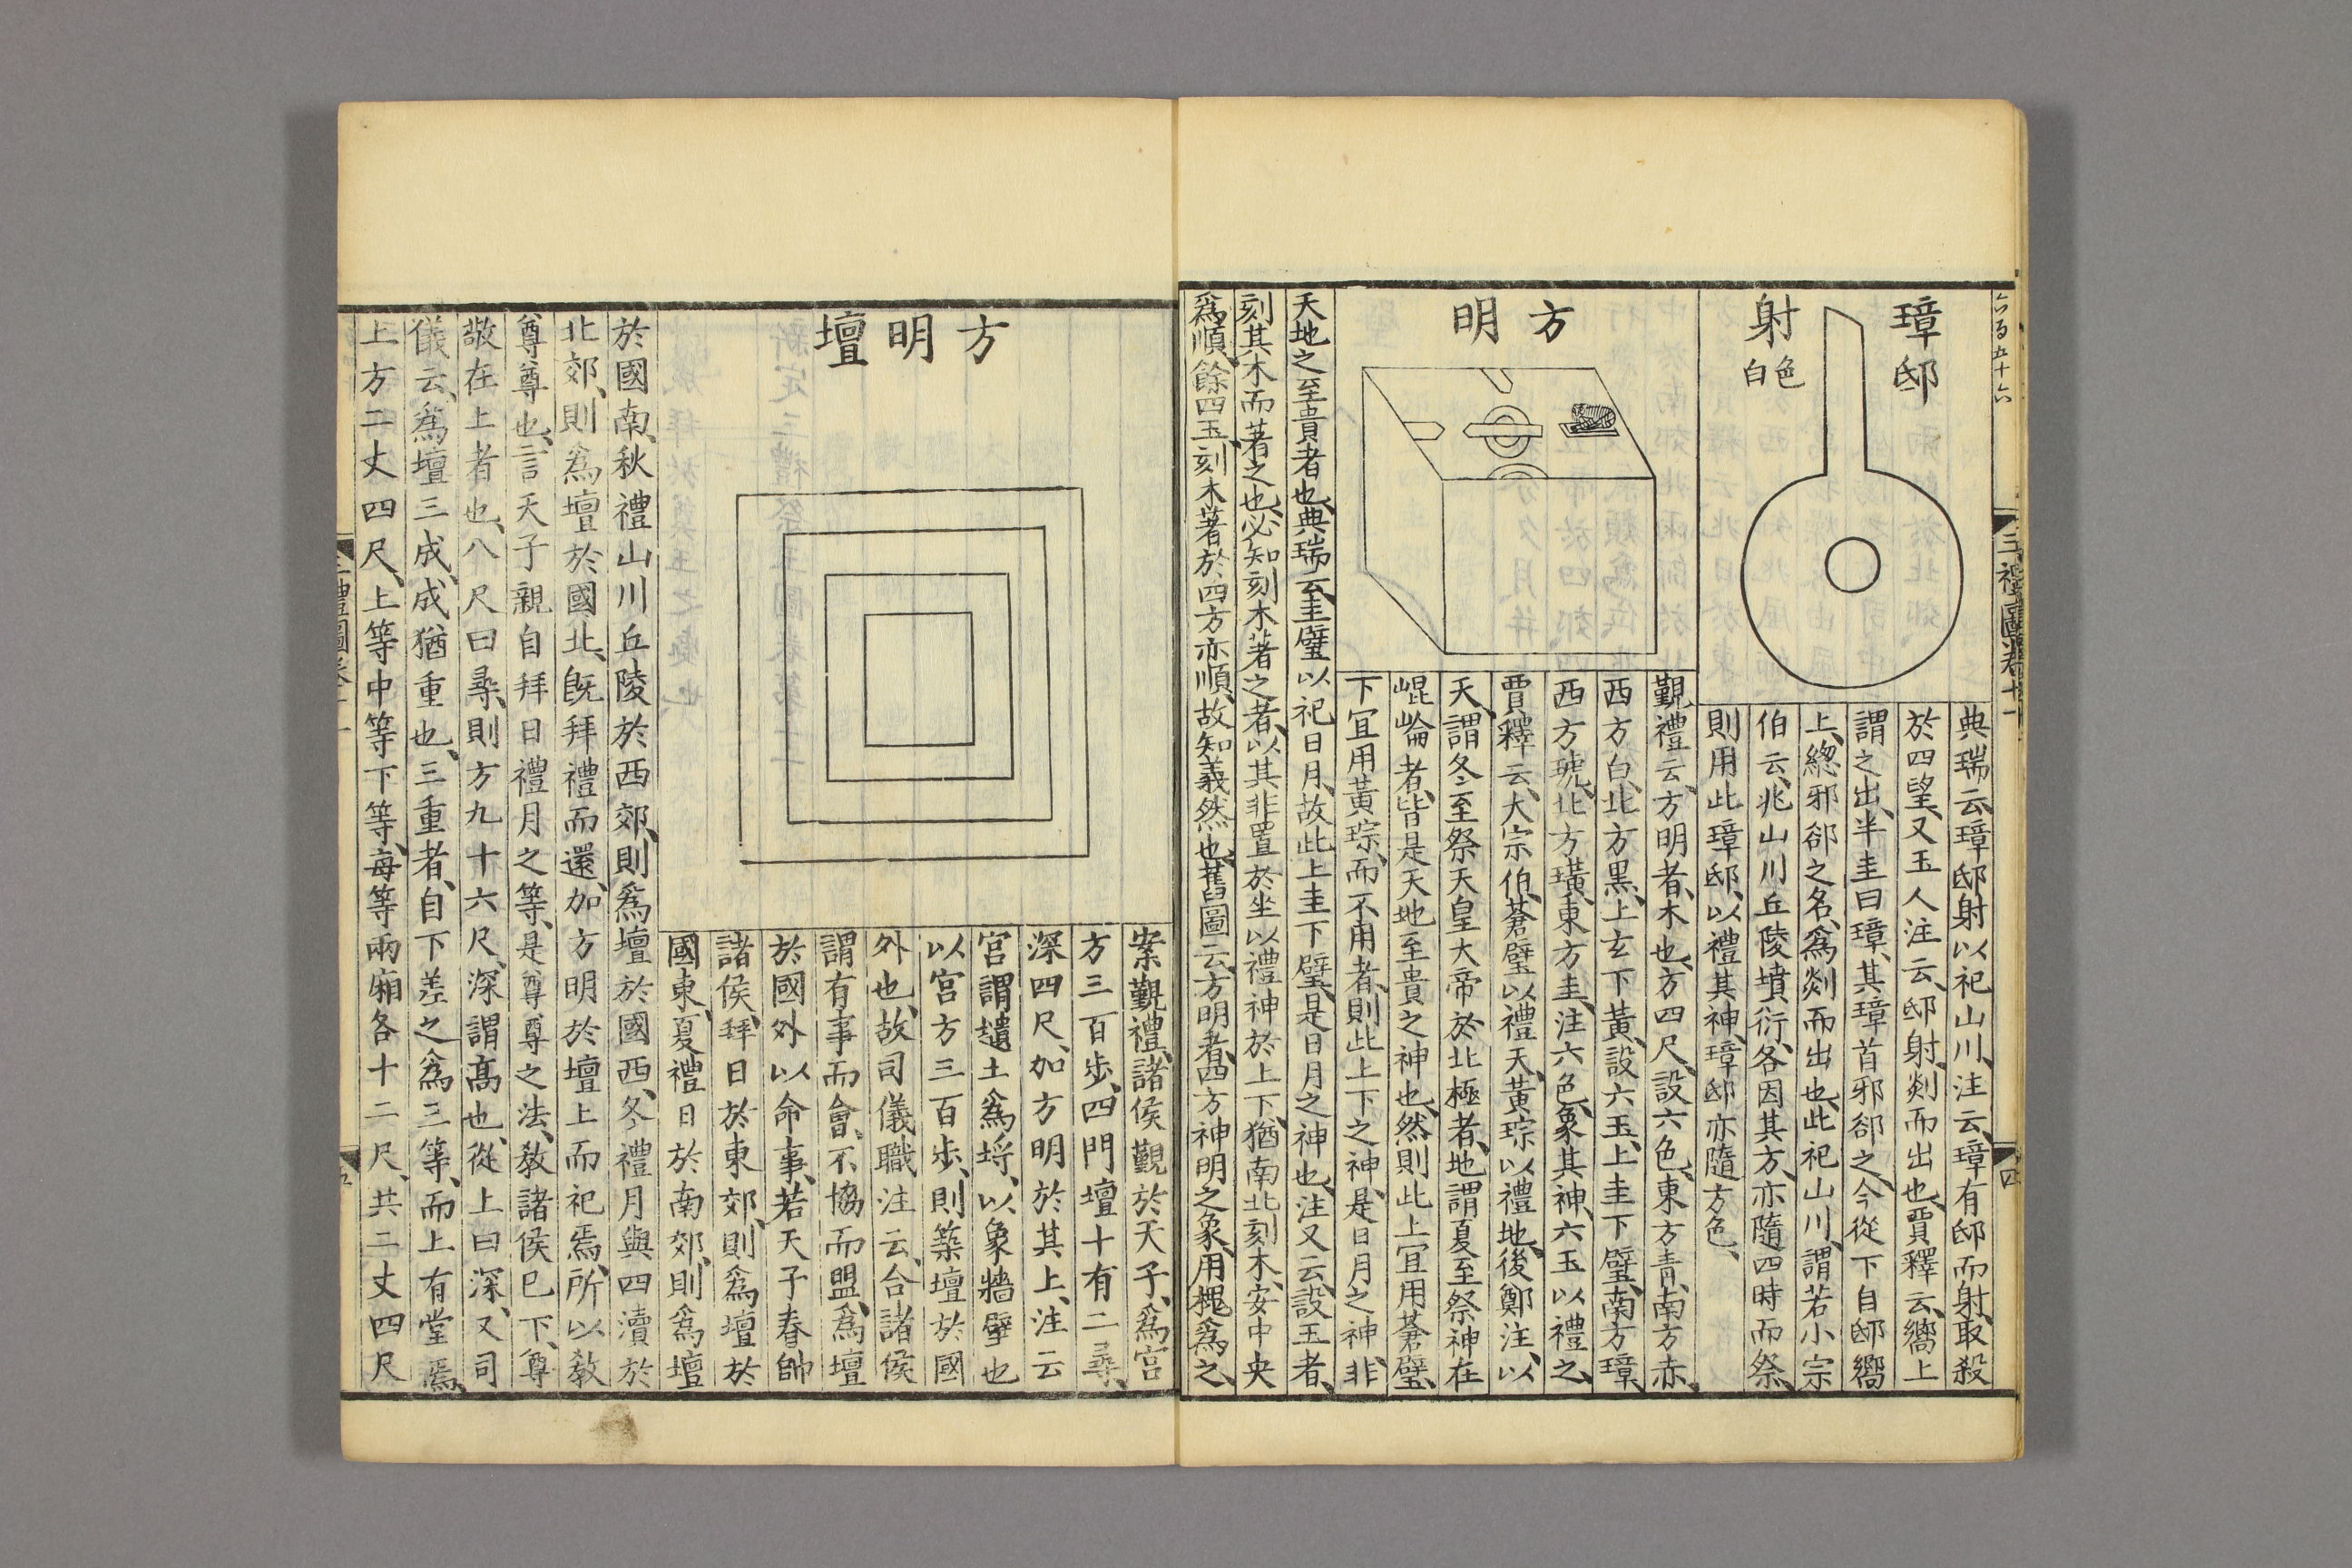 六百五十六
三禮圖卷十一
四
璋邸
射
色白
典瑞云、璋邸射以祀山川、注云、璋有邸而射、取殺
於四望、又玉人注云、邸射、剡而出也、賈釋云、嚮上
謂之出、半圭曰璋、其璋首邪卻之、今從下自邸嚮
上、緫邪卻之名、爲剡而出也、此祀山川、謂若小宗
伯云、兆山川丘陵墳衍、各因其方、亦隨四時而祭、
則用此璋邸、以禮其神、璋邸亦隨方色、
方明
覲禮云、方明者、木也、方四尺、設六色、東方青、南方赤、
西方白、北方黑、上玄下黃、設六玉、上圭下璧、南方璋、
西方琥、北方璜、東方圭、注六色、象其神、六玉以禮之、
賈釋云、大宗伯、蒼璧以禮天、黃琮以禮地、後鄭注、以
天、謂冬至祭天皇大帝於北極者、地謂夏至祭神在
崐崘者、皆是天地至貴之神也、然則此上宜用蒼璧、
下宜用黃琮、而不用者、則此上下之神、是日月之神、非
天地之至貴者也、典瑞云、圭璧以祀日月、故此上圭下璧、是日月之神也、注又云、設玉者、
刻其木而著之也、必知刻木著之者、以其非置於坐以禮神於上下、猶南北刻木、安中央
爲順、餘四玉刻木著於四方亦順、故知義然也、舊圖云、方明者、四方神明之象、用槐爲之、
方明壇
案覲禮、諸侯覲於天子、爲宮
方三百步、四門壇十有二尋、
深四尺、加方明於其上、注云
宮謂壝土爲埒、以象牆壁也
以宮方三百步、則築壇於國
外也、故司儀職注云、合諸侯
謂有事而會、不協而盟、爲壇
於國外以命事、若天子春帥
諸侯、拜日於東郊、則爲壇於
國東、夏禮日於南郊、則爲壇
於國南、秋禮山川丘陵於西郊、則爲壇於國西、冬禮月與四瀆於
北郊、則爲壇於國北、旣拜禮而還、加方明於壇上而祀焉、所以敎
尊尊也、言天子親自拜日禮月之等、是尊尊之法、敎諸侯已下、尊
敬在上者也、八尺曰尋、則方九十六尺、深、謂高也、從上曰深、又司
儀云、爲壇三成、成猶重也、三重者、自下差之爲三等、而上有堂焉、
上方二丈四尺、上等中等下等、每等兩廂各十二尺、共二丈四尺
三禮圖卷十一
五